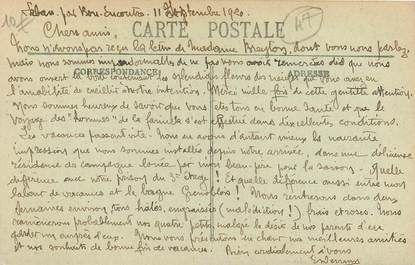 par Bon-Encontre, 11 Septembre 1920.
CARTE POSTALE
Chers amis,
Nous n'avons pas reçu la lettre de Madame Breyton, dont vous nous parlez
mais nous sommes impardonnables de ne pas vous avoir remerciés dès que nous
avons ouvert la boîte contenant les splendides fleurs des neiges que vous avez eu
CORRESPONDANCE
ADRESSE
l'amabilité de cueillir à notre intention. Merci mille fois de cette gentille attention.
Nous sommes heureux de savoir que vous êtes tous en bonne santé et que le
voyage des "hommes" de la famille s'est effectué dans d'excellents conditions.
Les vacances passent vite. Nous en avons d'autant mieux la navrante
impression que nous sommes installés depuis notre arrivée, dans une délicieuse
résidence de campagne louée par mon beau-père pour la saison. Quelle
différence avec notre prison du 3e étage! Et quelle différence aussi entre mon
labeur de vacances et le bagne Grenoblois! Nous rentrerons dans deux
semaines environ, tous hâlés, engraissés (malédiction!) frais et roses. Nous
ramènerons probablement nos quatre petits, malgré le désir de nos parents d'en
garder un auprès d'eux. Nous vous présentons en chœur nos meilleures amitiés
et nos souhaits de bonne fin de vacances.
Bien cordialement à vous